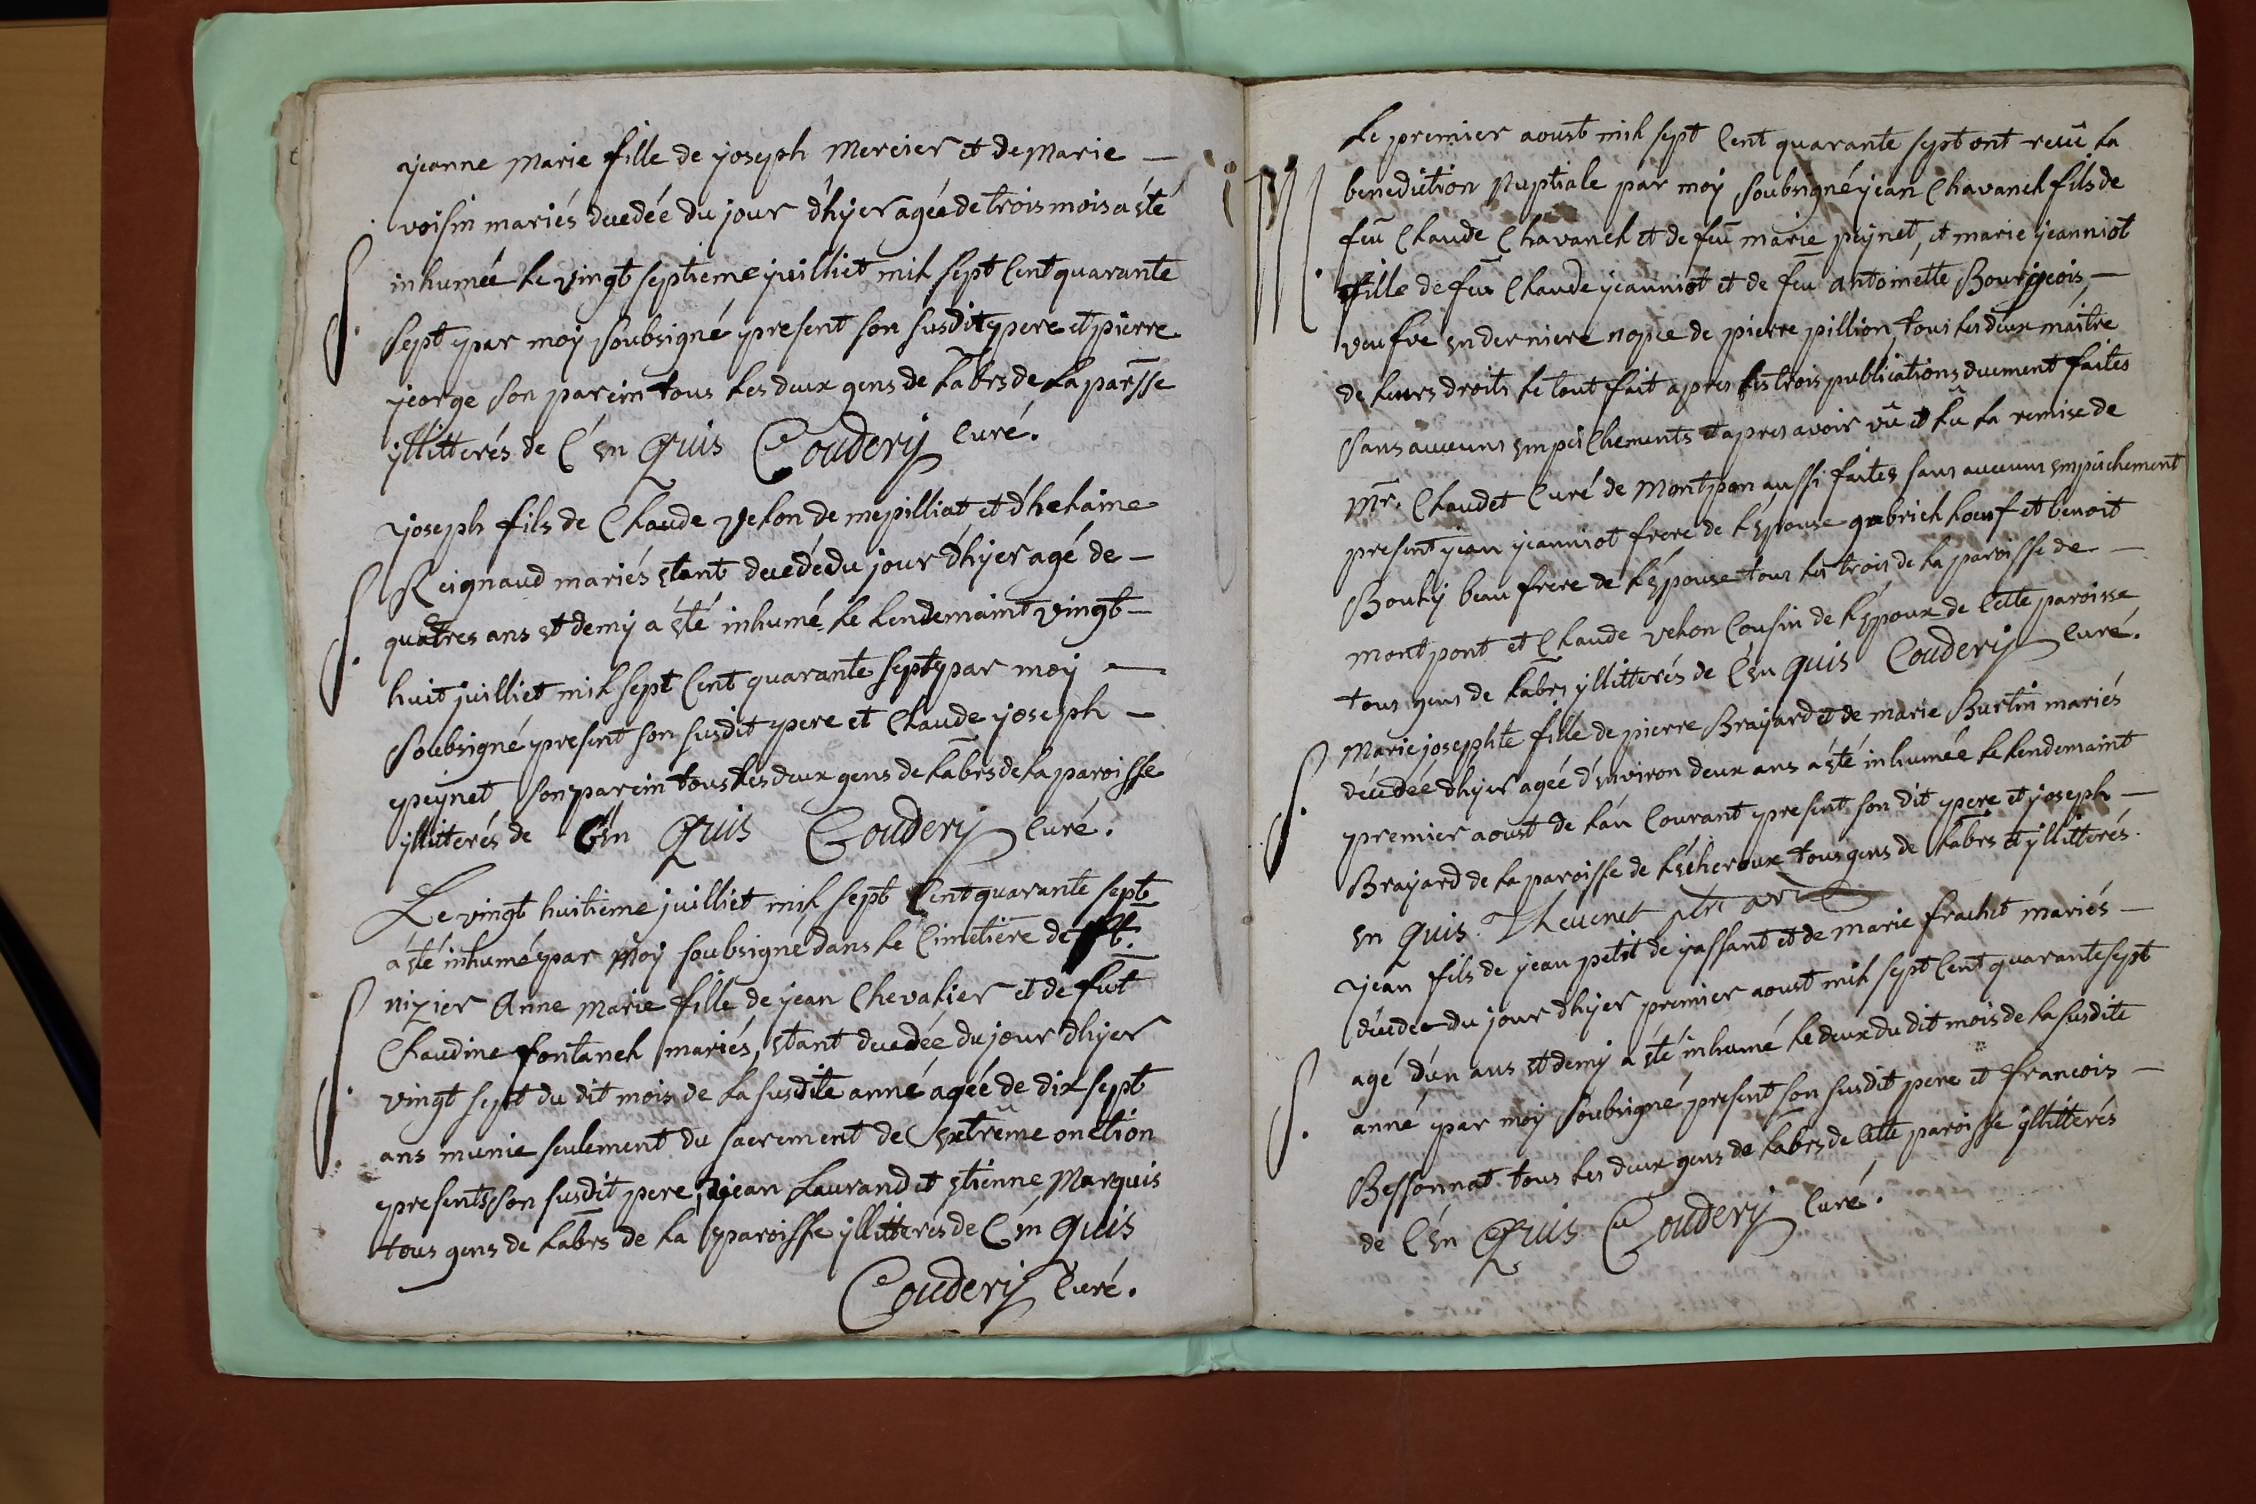 jeanne Marie fille de joseph Mercier et de Marie —
voisin mariés decedée du jour d'hyer agée de trois mois a esté
S. inhumée le vingt septieme juilliet mil sept Cent quarante
sept par moy soubsigné present son susdit pere et pierre
jeorge son parein tous les deux gens de labrs de la parsse
yllitterés de C'en Quis Coudery Curé.
joseph fils de Claude velon de mepilliat et d'helaine
Reignaud mariés etant decedé du jour d'hyer agé de —
S. quattres ans et demy a esté inhumé le lendemaint vingt —
huit juilliet mil sept Cent quarante sept par moy —
soubsigné present son susdit pere et Claude joseph —
peynet son parein tous les deux gens de labrs de la paroisse
yllitterés de C'en Quis Coudery Curé.
Le vingt huitieme juilliet mil sept Cent quarante sept
a esté inhumé par moy soubsigné dans le Cimetiere de st.
S. nizier Anne Marie fille de jean Chevalier et de fut
Claudine fontanel mariés, etant decedée du jour d'hyer
vingt sept du dit mois de la susdite anné agée de dix sept
ans munie seulement du sacrement de extrême onction
presents son susdit pere, jean Laurand et etienne Marquis
tous gens de labrs de la paroisse yllitterés de C'en Quis
Coudery Curé.
Le premier aoust mil sept Cent quarante sept ont reçu la
M. benediction Nuptiale par moy soubsigné jean Chavanel fils de
feu Claude Chavanel et de feu marie peynet, et marie jeanniot
fille de feu Claude jeanniot et de feu antoinette Bourgeois, —
veufve en derniere nopce de pierre pillion, tous les deux maitre
de leurs droits le tout fait apres les trois publications duement faites
sans aucuns empeschements et apres avoir vû et lû la remise de
Mr. Claudet Curé de Montpon aussi faites sans aucuns empechement
present jean jeanniot frere de l'epouse gabriel loeuf et benoit
Bouly beau frere de l'epouse tous les trois de la paroisse de —
montpont et Claude velon Cousin de l'époux de Cette paroisse
tous gens de labrs yllitterés de C'en quis Coudery Curé.
Marie josephte fille de pierre Brayard et de marie Burtin mariés
S. décedée d'hyer agée d'environ deux ans a esté inhumée le lendemaint
premier aoust de l'an Courant present son dit pere et joseph —
Brayard de la paroisse de l'escheroux tous gens de labrs et yllitterés
en quis. Thevenet ptre
jean fils de jean petit de jassant et de marie frachet mariés —
décedee du jour d'hyer premier aoust mil sept Cent quarante sept
S. agé d'un ans et demy a esté inhumé le deux du dit mois de la susdite
anné par moy soubsigné present son susdit pere et francois —
Bessonnat tous les deux gens de labrs de Cette paroisse yllitterés
de C'en Quis Coudery Curé.